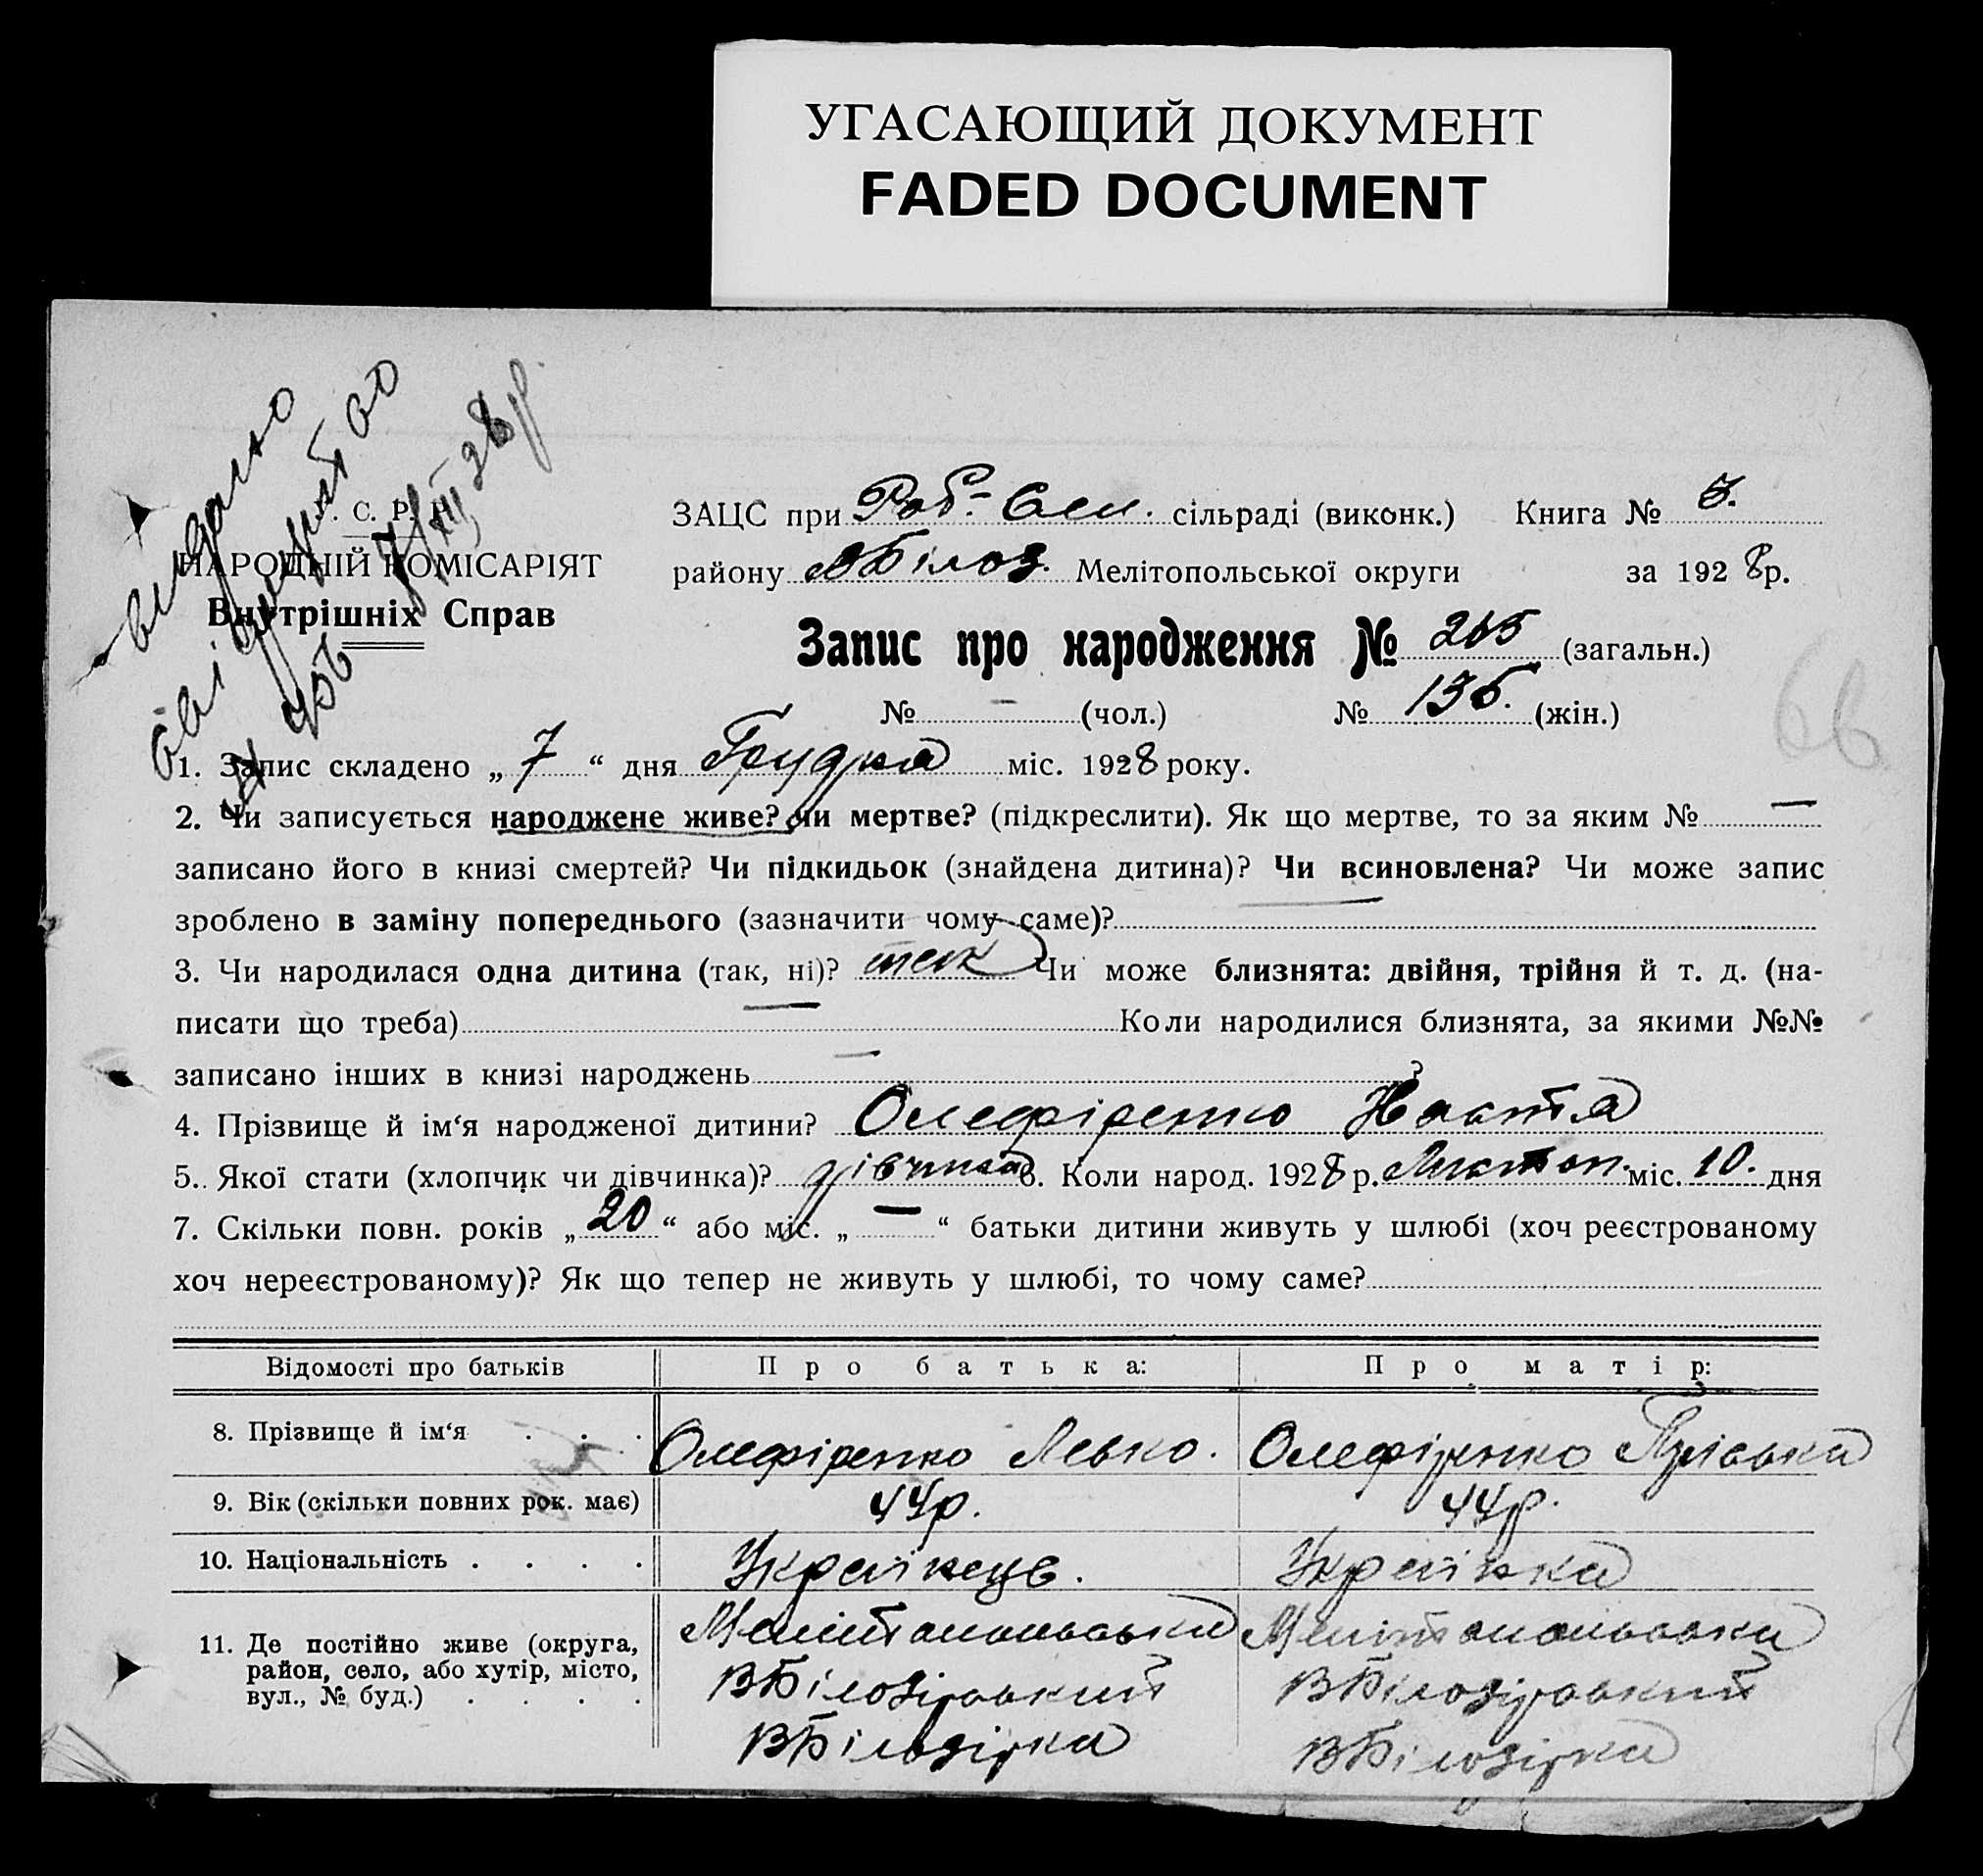 УГАСАЮЩИЙ ДОКУМЕНТ
FADED DOCUMENT
видано
свідоцтво
7/XII 28р.
. С. Р. Р.
НАРОДНІЙ КОМІСАРІЯТ
Внутрішніх Справ
ЗАЦС при Роб.- Сел. сільраді (виконк.) Книга №
району ВБілоз. Мелітопольської округи за 1928р.
Запис про народження № 265 (загальн.)
№ — (чол.) № 136. (жін.)
66
1. Запис складено „7“ дня Грудня міс. 1928 року.
2. Чи записується народжене живе? чи мертве? (підкреслити). Як що мертве, то за яким № —
записано його в книзі смертей? Чи підкидьок (знайдена дитина)? Чи всиновлена? Чи може запис
зроблено в заміну попереднього (зазначити чому саме)? —
3. Чи народилася одна дитина (так, ні)? так Чи може близнята: двійня, трійня й т. д. (на-
писати що треба) — Коли народилися близнята, за якими №№
записано інших в книзі народжень — ?
4. Прізвище й ім‘я народженої дитини? Олефіренко Настя
5. Якої стати (хлопчик чи дівчинка)? дівчинка 6. Коли народ. 1928 р. Листоп. міс. 10. дня
7. Скільки повн. років „20“ або міс. „—“ батьки дитини живуть у шлюбі (хоч реєстрованому
хоч нереєстрованому)? Як що тепер не живуть у шлюбі, то чому саме?
Відомості про батьків Про батька: Про матір:
8. Прізвище й ім‘я . . . Олефіренко Левко. Олефіренко Пріська
9. Вік (скільки повних рок. має) 44р. 44р.
10. Національність . . . . Українець. Українка
11. Де постійно живе (округа, Мелітопольська Мелітопольська
район, село, або хутір, місто, ВБілозірський ВБілозірський
вул., № буд.) . . . . ВБілозірка ВБілозірка